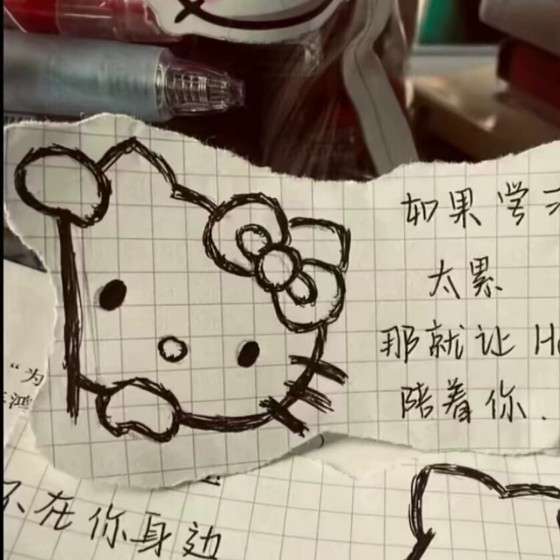 如果学习
太累
那就让 He
陪着你.
"为
不在你身边